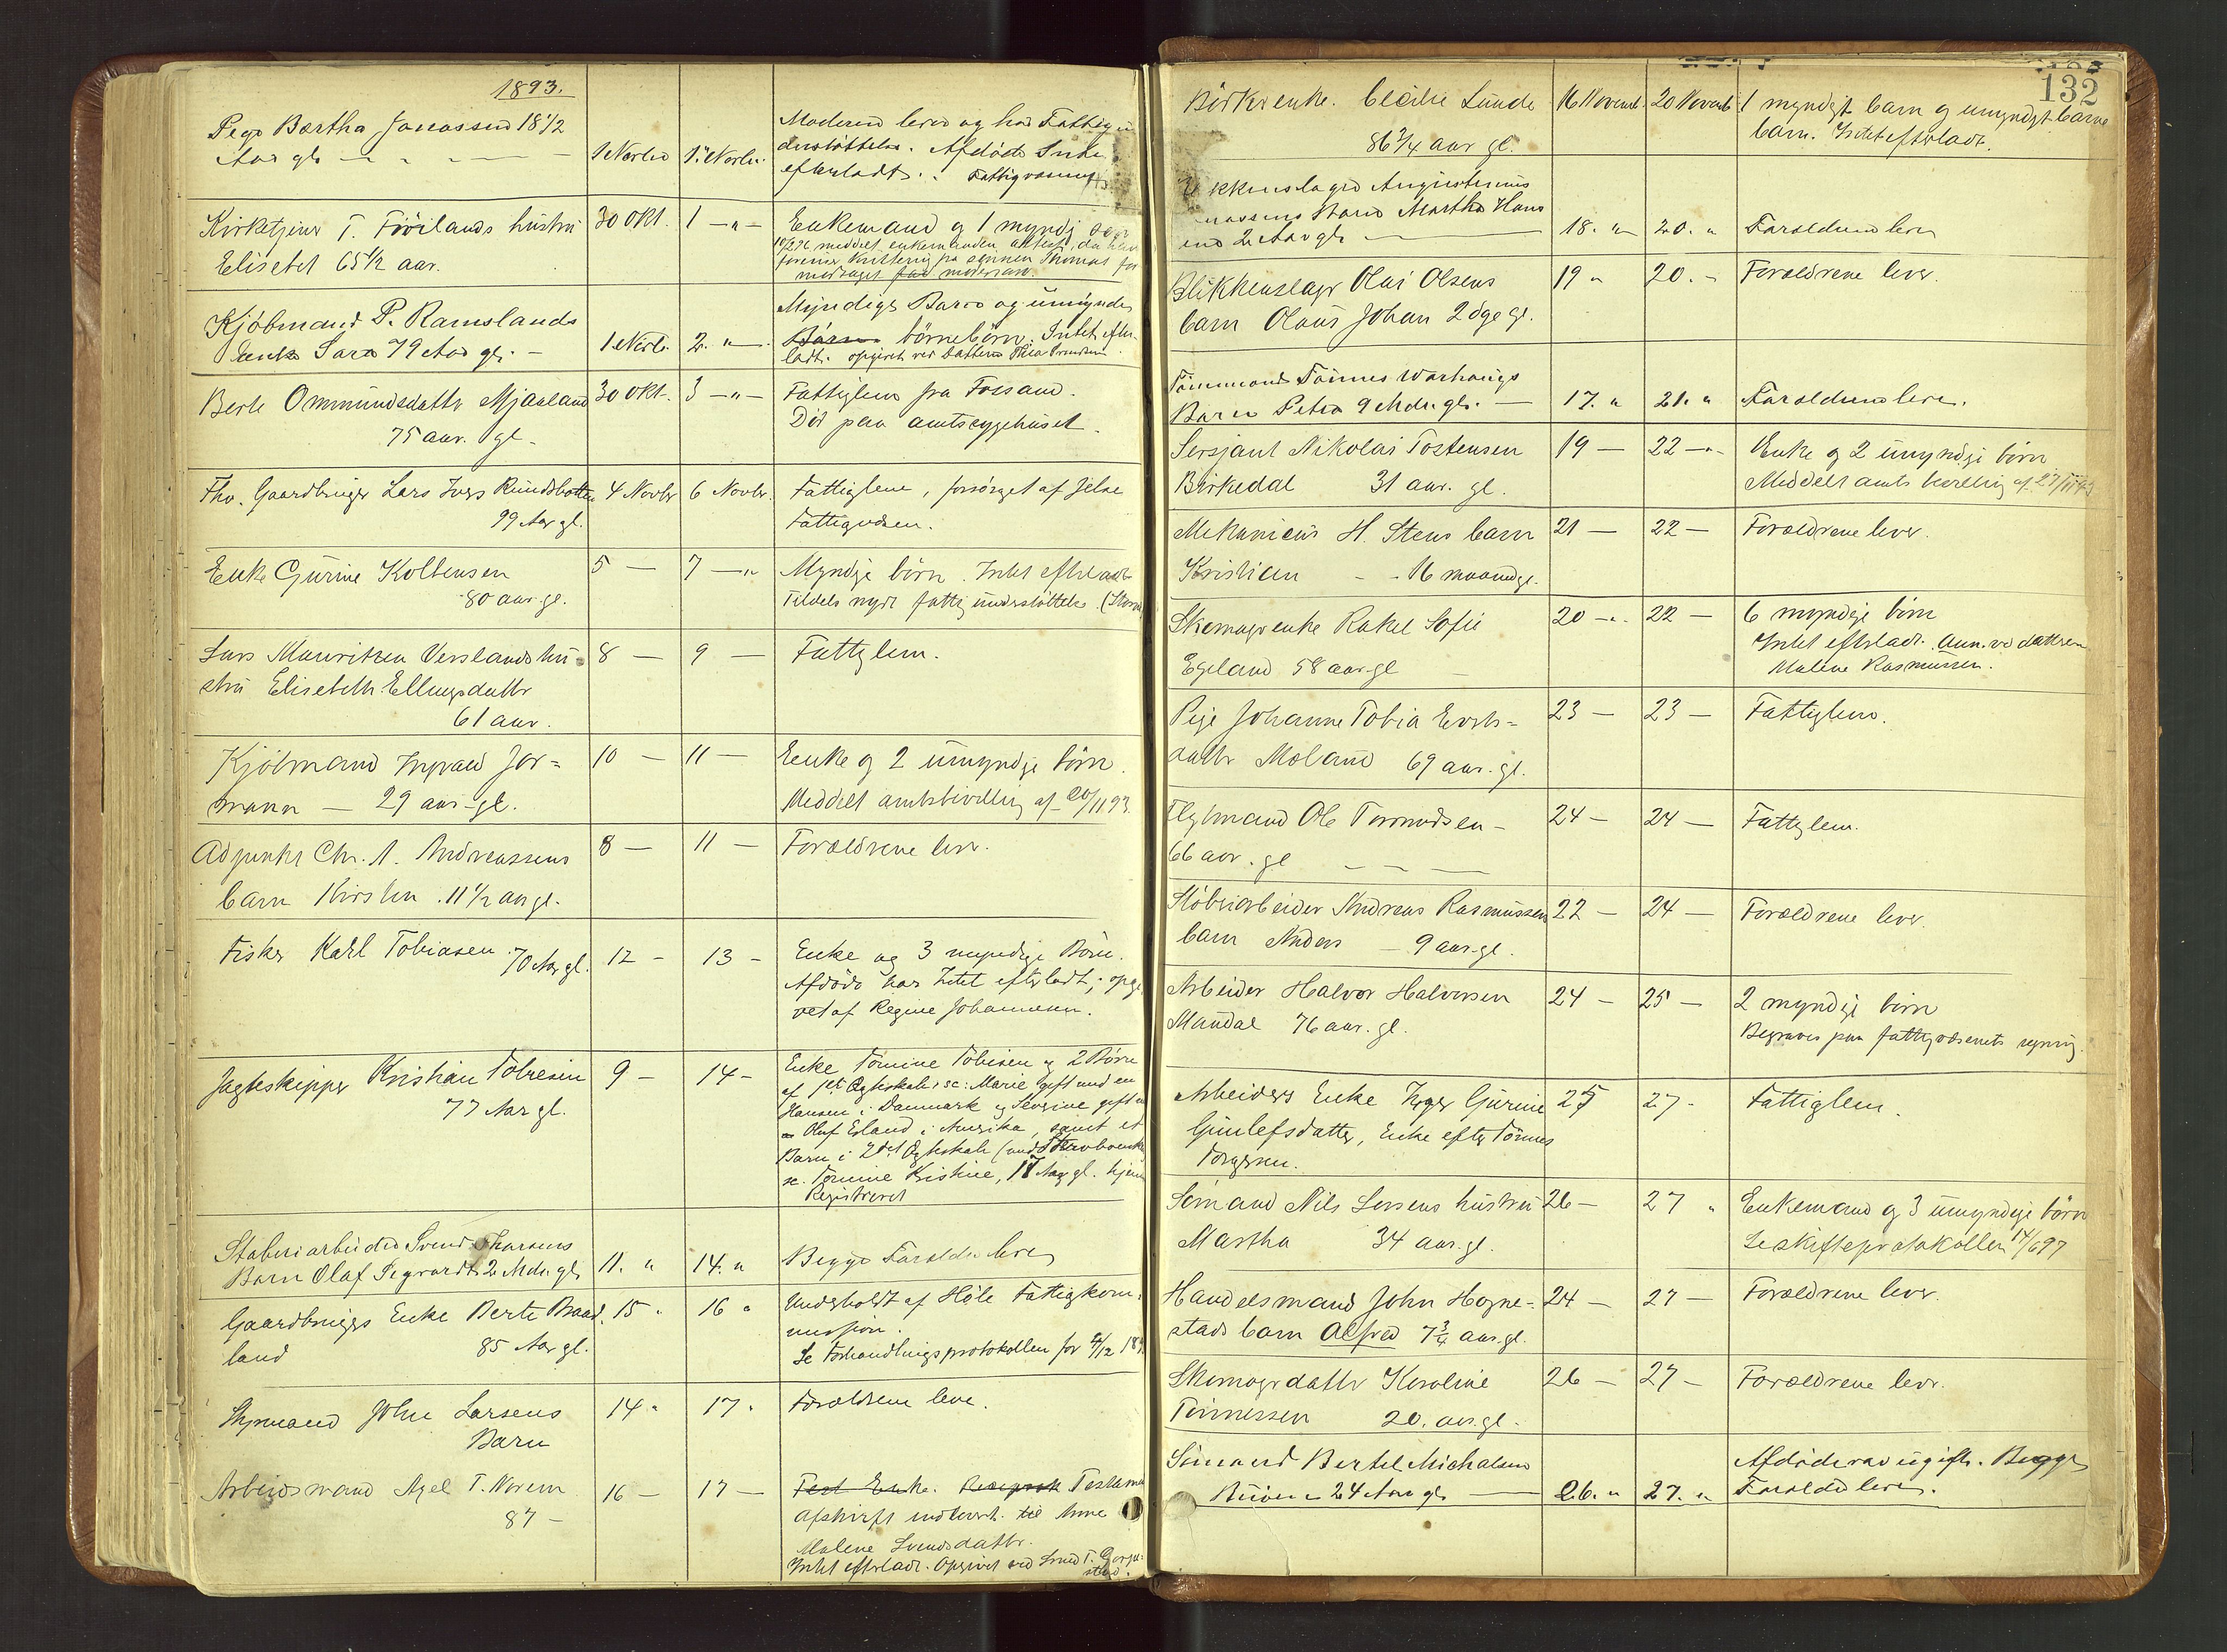 1893.
Pige Bertha Jonassen 18 1/2
Aar gl.
1 Novbr
1. Novbr.
Moderen lever og har Fattigun
derstøttelse. Afdøde Intet
efterladt. Fattigvæsenet
Kirketjener T. Tivilands hustru
Elisebet 65 1/2 aar.
30 Okt.
1 — " —
Enkemand og 1 myndig søn
meddelt enkemanden attest, da han
Thomas for
Kjöbmand P. Ramslands
Enke Sara 79 Aar gl. —
1 Novb.
2. — "
Myndige Børn og umyndige
Børn börnebörn. Intet efter-
ladt. opgivet ved Datteren
Berte Ommundsdattr Mjaaland
75 aar gl.
30 Okt.
3 — " —
Fattiglem fra Fossand.
Död paa amtssygehuset.
Fhv. Gaardbruger Lars Ivers
99 Aar gl.
4 Novbr
6 Novbr.
Fattiglem, forsörget af Jelse
Fattigvæsen.
Enke Gurine Koltensen
80 aar gl.
5 —
7 — "
Myndige börn. Intet efterladt
Tildels nydt fattigunderstöttelse.
Lars Mauritzen Verslands hu-
stru Elisebeth Ellingsdattr
61 aar.
8 —
9 —
Fattiglem.
Kjöbmand Ingvald Jor=
mann — 29 aar gl.
10 —
11 —
Enke og 2 umyndige börn.
Meddelt amtsbevilling af 20/11 93.
Adjunkt Chr. A. Andreassens
barn Kirsten. 11 1/2 aar gl.
8 —
11 —
Forældrene lever.
Fisker Karl Tobiasen 70 Aar gl.
12 —
13 —
Enke og 3 myndige Börn.
Afdöde har Intet efterladt; opgi
vet af Regine Johannesen.
Jagteskipper Kristian Tobiesen
77 Aar gl.
9 —
14 —
Enke Tomine Tobiesen og 2 Börn
af 1ste Ægteskab: sc: Marie gift med en
Hansen i Danmark og Severine gift m
Oluf Eeland i Amerika, samt et
Barn i 2det Ægteskab (med
sc. Tomine Kristine, 17 Aar gl. hjem
Registreret
Støberiarbeider Svend Tharsens
Barn Olaf Sigvardt 2 Mdr. gl.
11. "
14. "
Begge Forældre lever
Gaardbrugers Enke Berte Braad
land 85 Aar gl.
15 "
16 "
Underholdt af Höle Fattigkom
mission.
Se Forhandlingsprotokollen for 4/12 189
Styrmand John Larsens
Barn
14 "
17 "
Forældrene leve.
Arbeidsmand Axel T. Norem
87 —
16 —
17 —
Test Enke. Testame
afskrift indlevert til
Malene Svendsdattr.
Intet efterladt. Opgivet ved
132
enke. Cecilie Lunde
86 3/4 aar gl.
16 Novemb.
20 Novemb.
1 myndigt barn og umyndigt barne
barn. Intet efterladt.
Augustinius
Barn Martha Hans
ine 2 Aar gl.
18. "
20. "
Forældrene lever
Blikkenslagr Olai Olsens
barn Olaus Johan 2 dge gl.
19 "
20. "
Forældrene lever.
Tömmermand Tönnes Warhaugs
Barn Petra 9 Mdr. gl.
17. "
21. "
Forældrene lever.
Sersjant Nikolai Tostensen
Birkedal 31 aar. gl.
19 —
22 — " —
Enke og 2 umyndige börn
Meddelt amts bevilling af 27/11 93
Mekanicus H. Stens barn
Kristian — 16 maand gl.
21 —
22 —
Forældrene lever.
Skomagr enke Rakel Sofie
Egeland 58 aar gl
20 —
22 —
6 myndige börn
Intet efterladt. Anm. ved dattren
Malene Rasmussen.
Pige Johanne Tobia Everts=
dattr Moland 69 aar. gl.
23 —
23 —
Fattiglem.
Ole Tormodsen —
66 aar. gl
24 —
24 —
Fattiglem.
Stöberiarbeider Andreas Rasmussens
barn Anders — 9 aar gl.
22 —
24 —
Forældrene lever.
Arbeider Halvor Halvorsen
Mandal 76 aar. gl.
24 —
25 —
2 myndige börn
Begraves paa fattigvæsenets regning.
Arbeiders Enke Inger Gurine
Gunlefsdatter, Enke efter Tönnes
Torgersen.
25
27 —
Fattiglem.
Sömand Nils Larsens hustru
Martha 34 aar. gl.
26 —
27 "
Enkemand og 3 umyndige börn
Se skifteprotokollen 14/6 97
Handelsmand John Hogne=
stads barn Alfred 7 3/4 aar. gl.
24 —
27 —
Forældrene lever.
Skomagr dattr Karoline
Tönnessen 20. aar. gl.
26 —
27 —
Forældrene lever.
Sömand Bertel Michalsen
24 Aar gl.
26. "
27. "
Afdöde var ugift. Begge
Forældre lever.